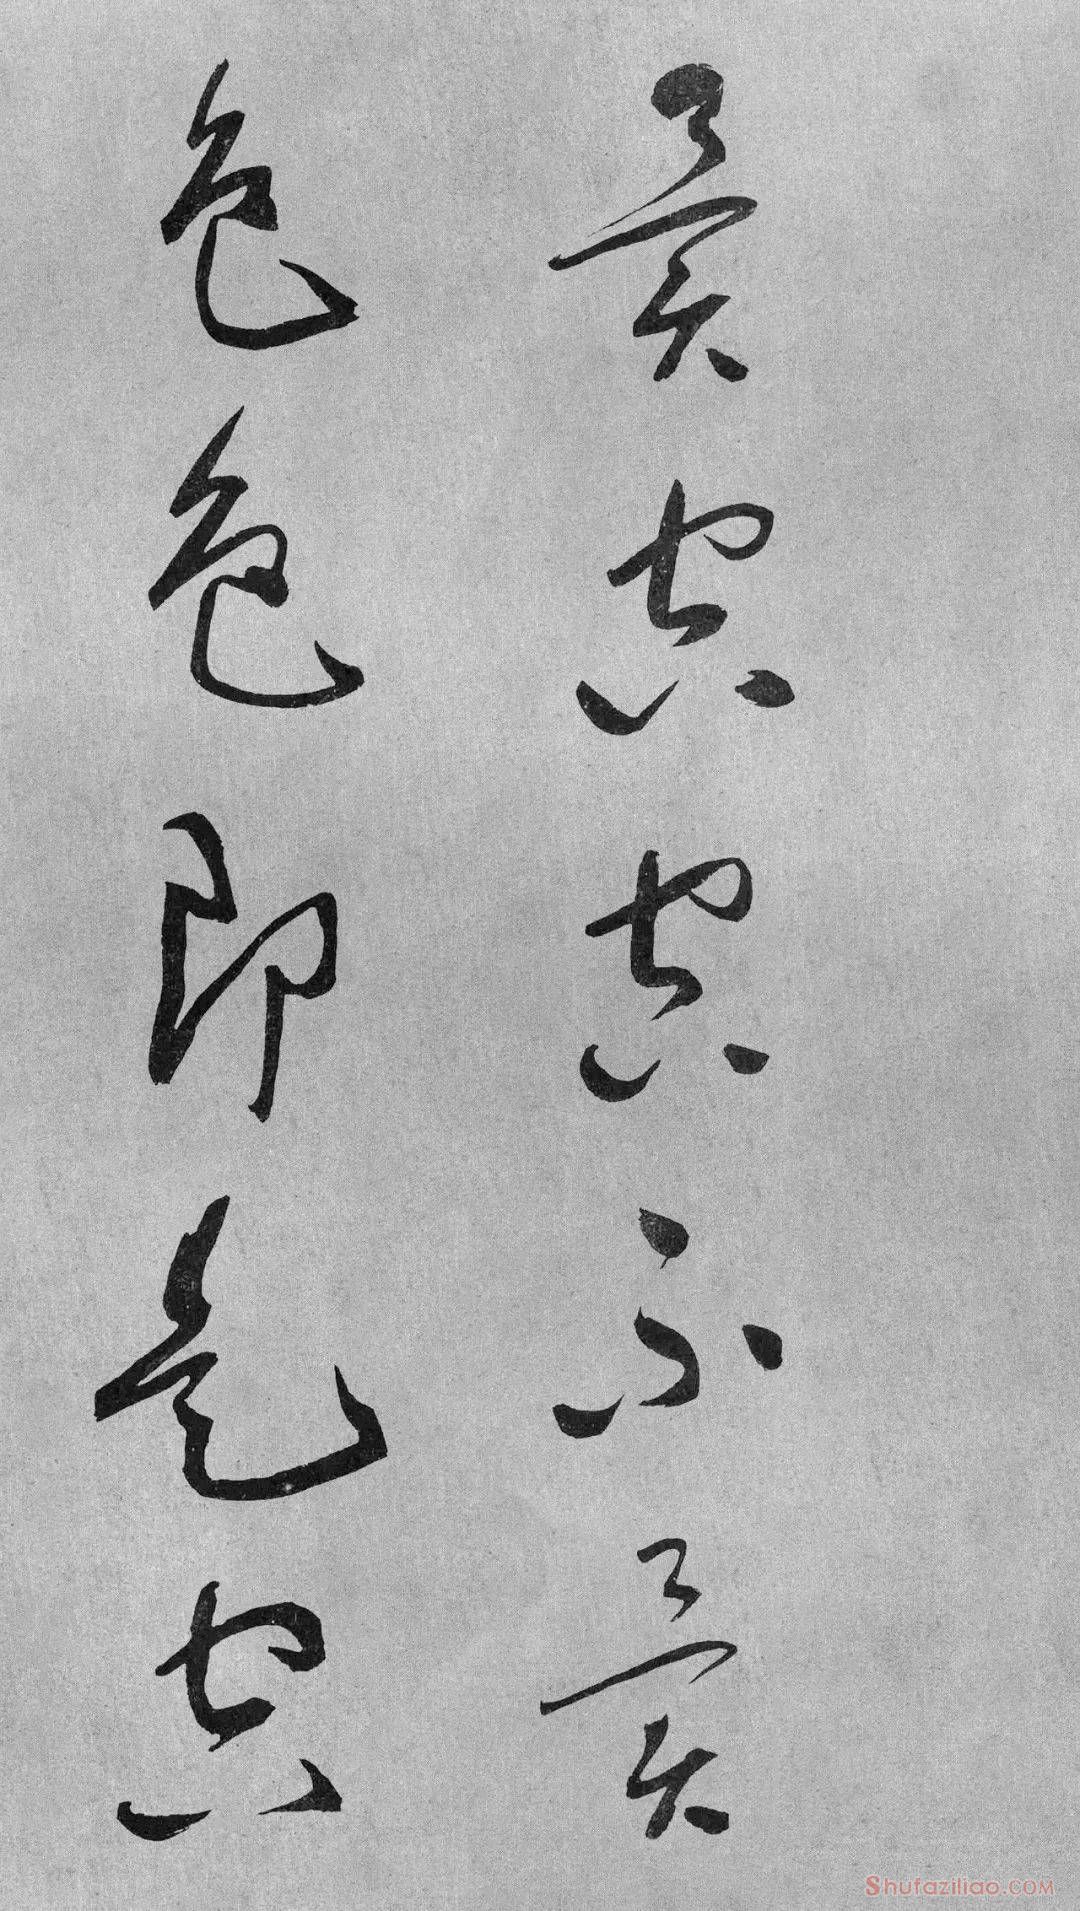 異空空不異
色色即是空
Shufaziliao.COM